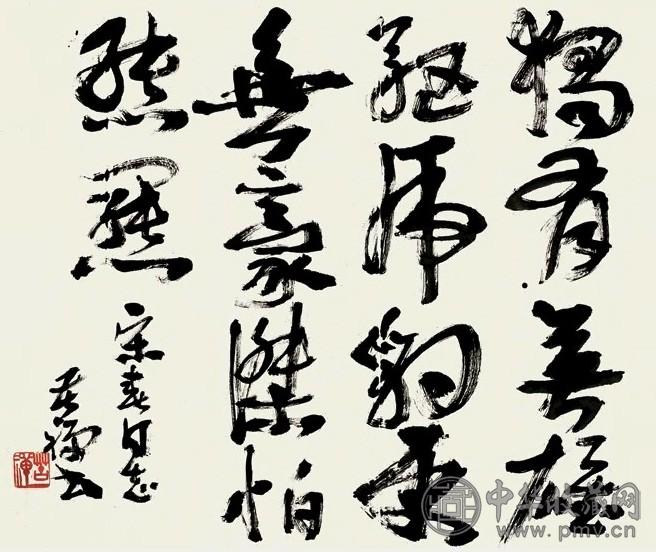 獨有英雄
驅虎豹更
無豪傑怕
熊羆
宋春同志
苦禪书
中华收藏网
www.pmv.cn